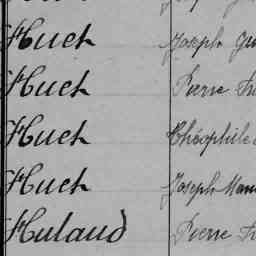 Huet Joseph
Huet Pierre
Huet Théophile
Huet Joseph
Hulaud Pierre